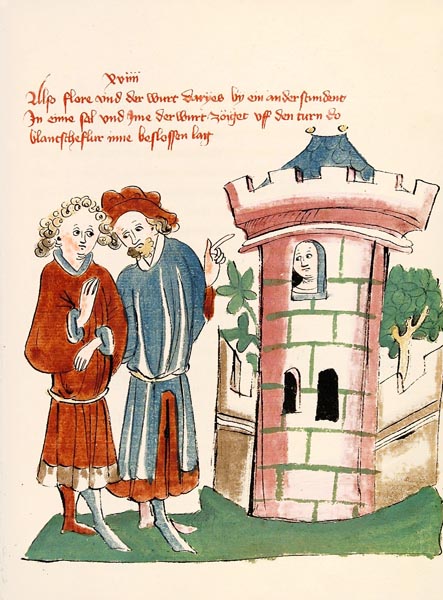 xviiii
Also flore vnd der wurt daryes by ein ander stundent
In eime sal vnd ime der wurt zöiget vff den turn do
blantscheflur inne beslossen lag